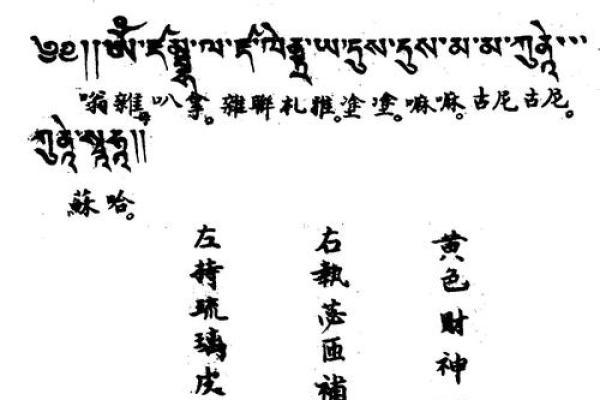 ༄༅།།ཨོཾ་ཛམྦྷ་ལ་ཛ་ལེནྡྲ་ཡ་དུས་དུས་མ་མ་ཀུནྡེ་
嗡雜叭拿。雜聯札雅。塗塗。嘛嘛。古尼古尼。
ཀུནྡེ་སྭཧཱ།།
蘇哈。
黄色財神
右執苾匝補
左持琉璃